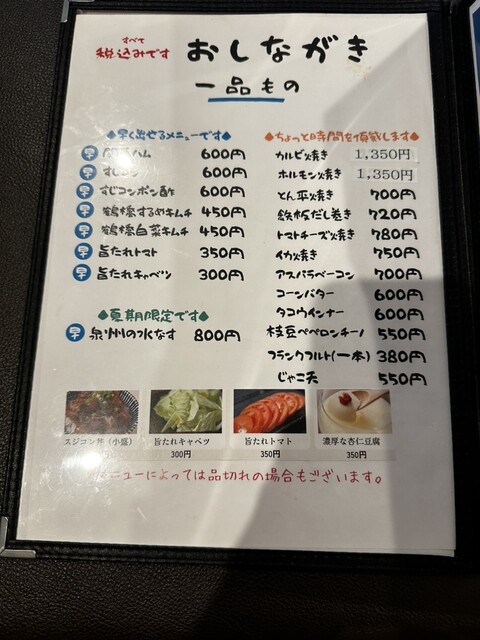 すべて
税込みです
おしながき
一品もの
◆早く出せるメニューです◆
早 ハム 600円
早 すじコン 600円
早 すじコンポン酢 600円
早 鶴橋するめキムチ 450円
早 鶴橋白菜キムチ 450円
早 旨たれトマト 350円
早 旨たれキャベツ 300円
◆夏期限定です◆
早 泉州の水なす 800円
◆ちょっと時間を頂戴します◆
カルビ焼き 1,350円
ホルモン焼き 1,350円
とん平焼き 700円
鉄板だし巻き 720円
トマトチーズ焼き 780円
イカ焼き 750円
アスパラベーコン 700円
コーンバター 600円
タコウインナー 600円
枝豆ペペロンチーノ 550円
フランクフルト(一本) 380円
じゃこ天 550円
スジコン丼（小盛）
旨たれキャベツ
300円
旨たれトマト
350円
濃厚な杏仁豆腐
350円
メニューによっては品切れの場合もございます。